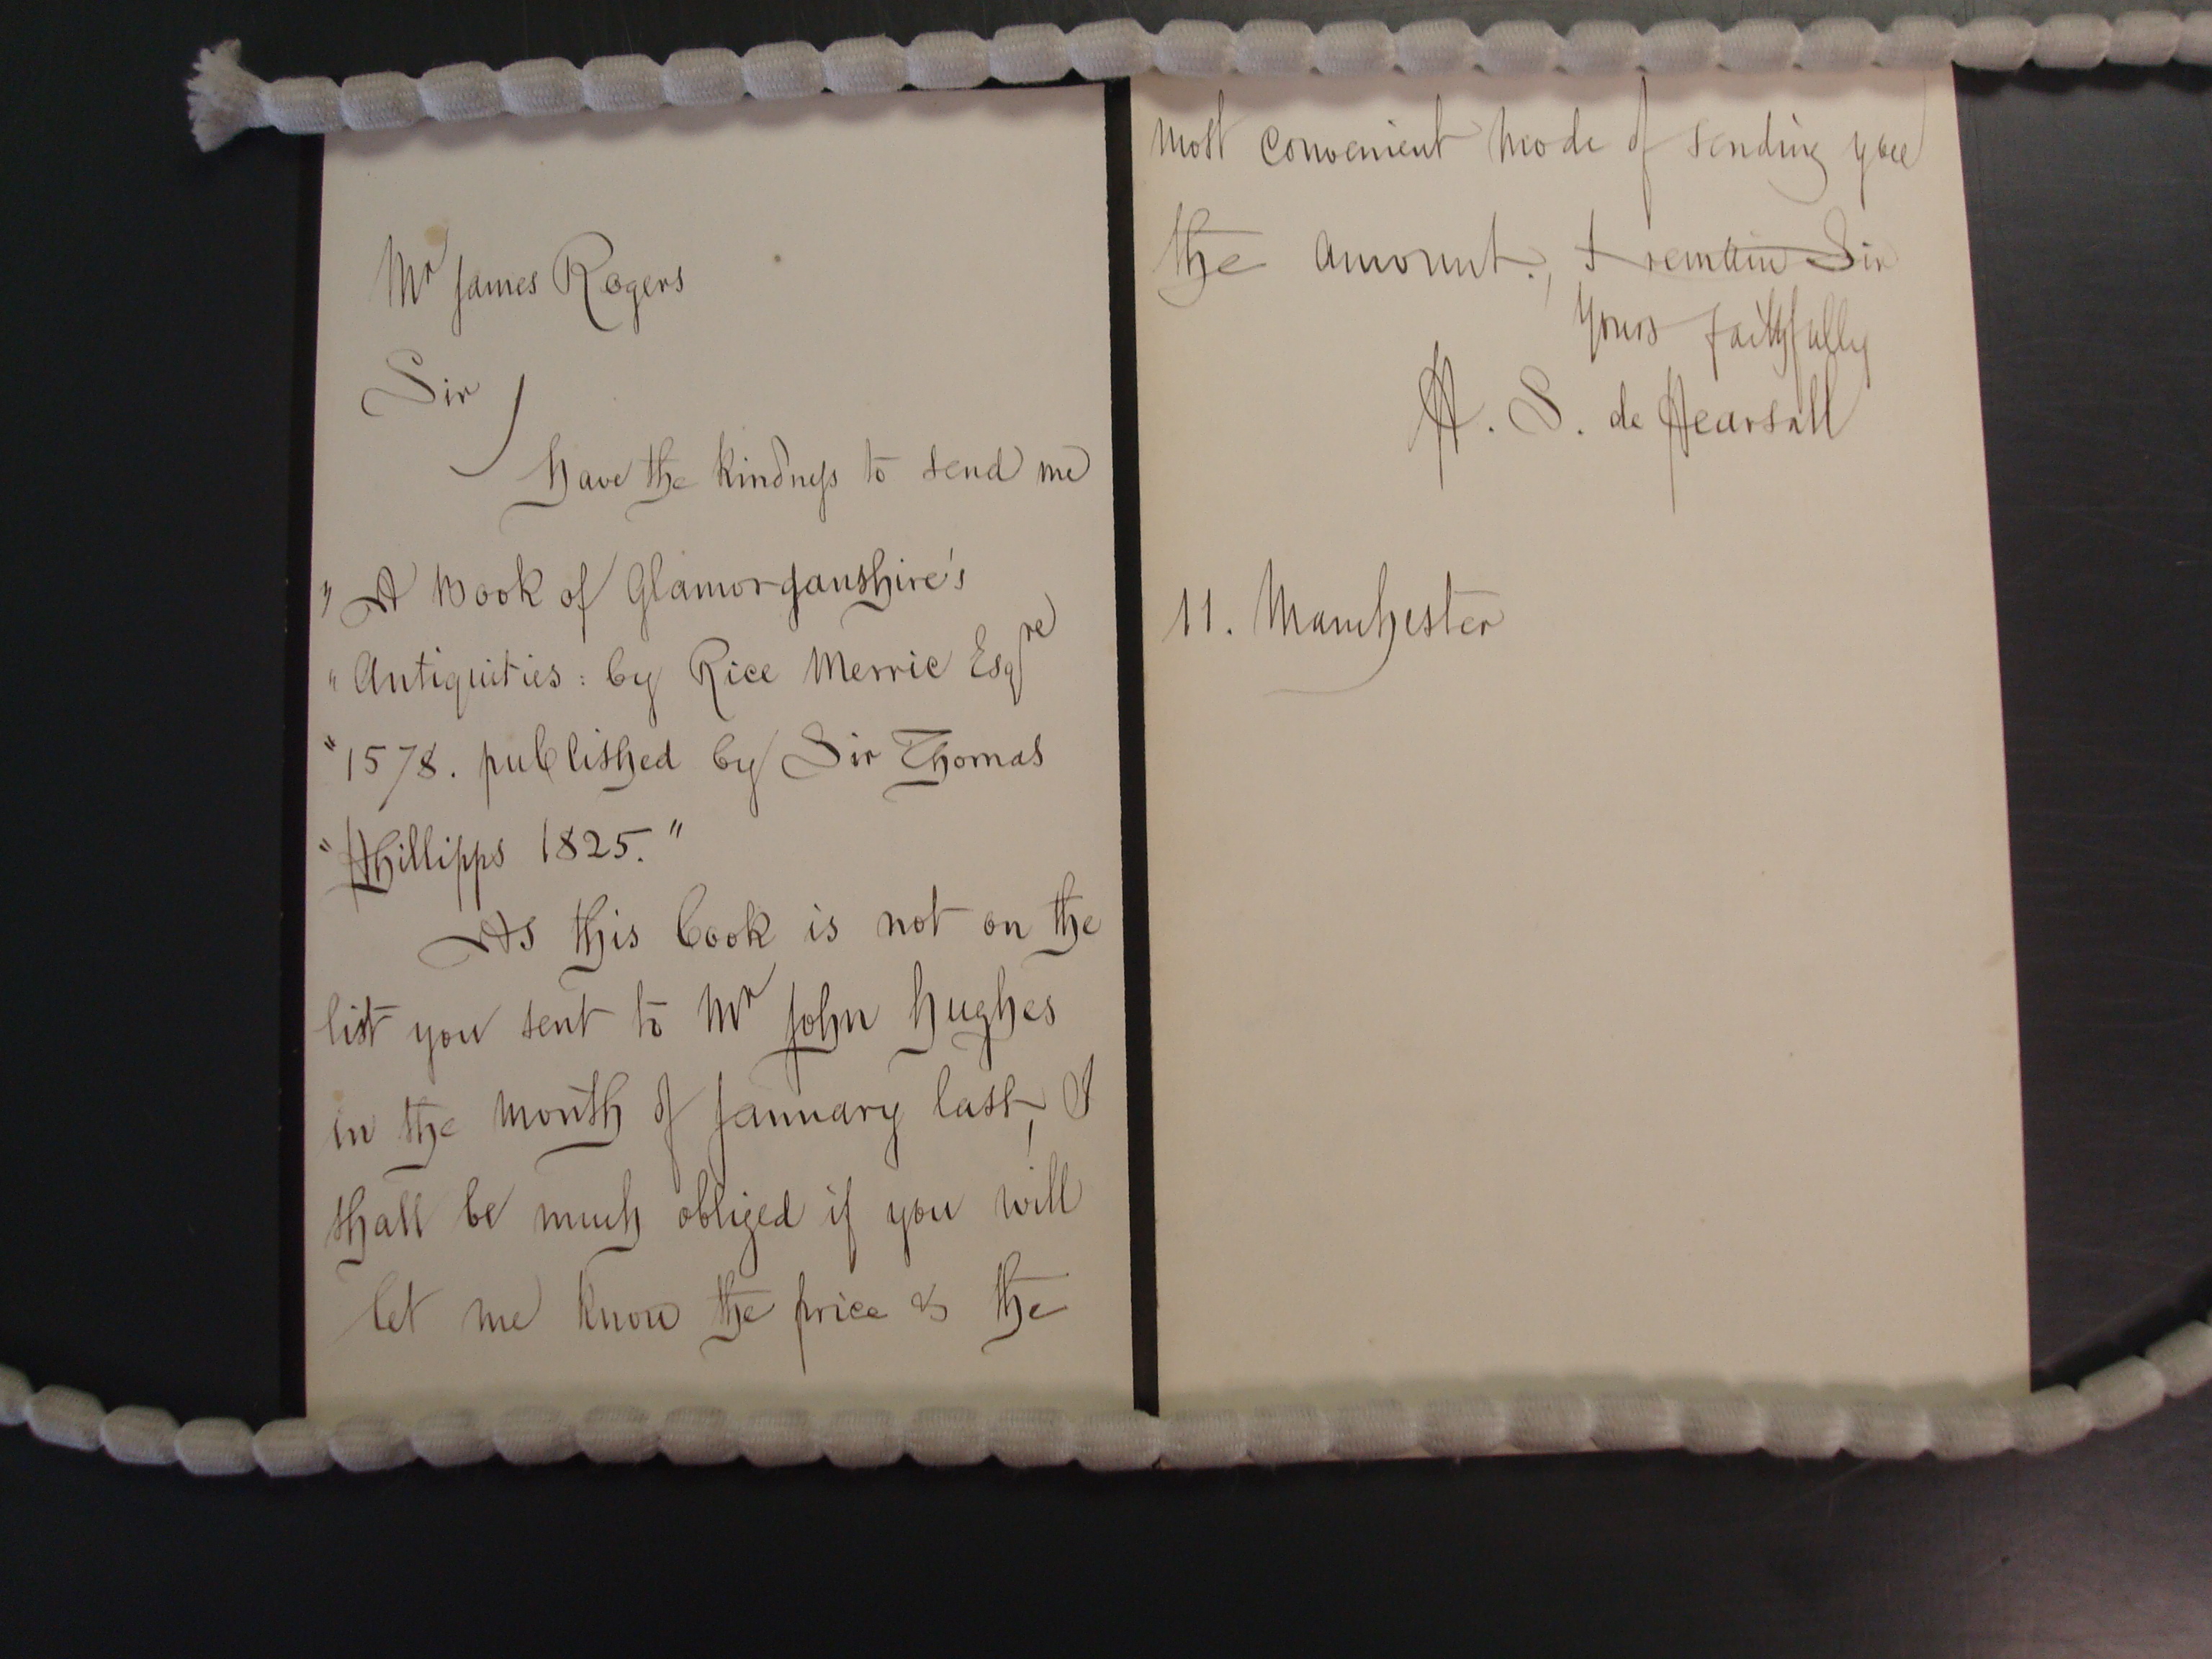 Mr James Rogers
Sir
have the kindness to send me
" A Book of Glamorganshire's
" Antiquities : by Rice Merric Esqre
" 1578. published by Sir Thomas
" Phillipps 1825."
As this book is not on the
list you sent to Mr John Hughes
in the month of January last, I
shall be much obliged if you will
let me know the price & the
most convenient mode of sending you
the amount., I remain Sir
yours faithfully
H. S. de Pearsall
11. Manchester